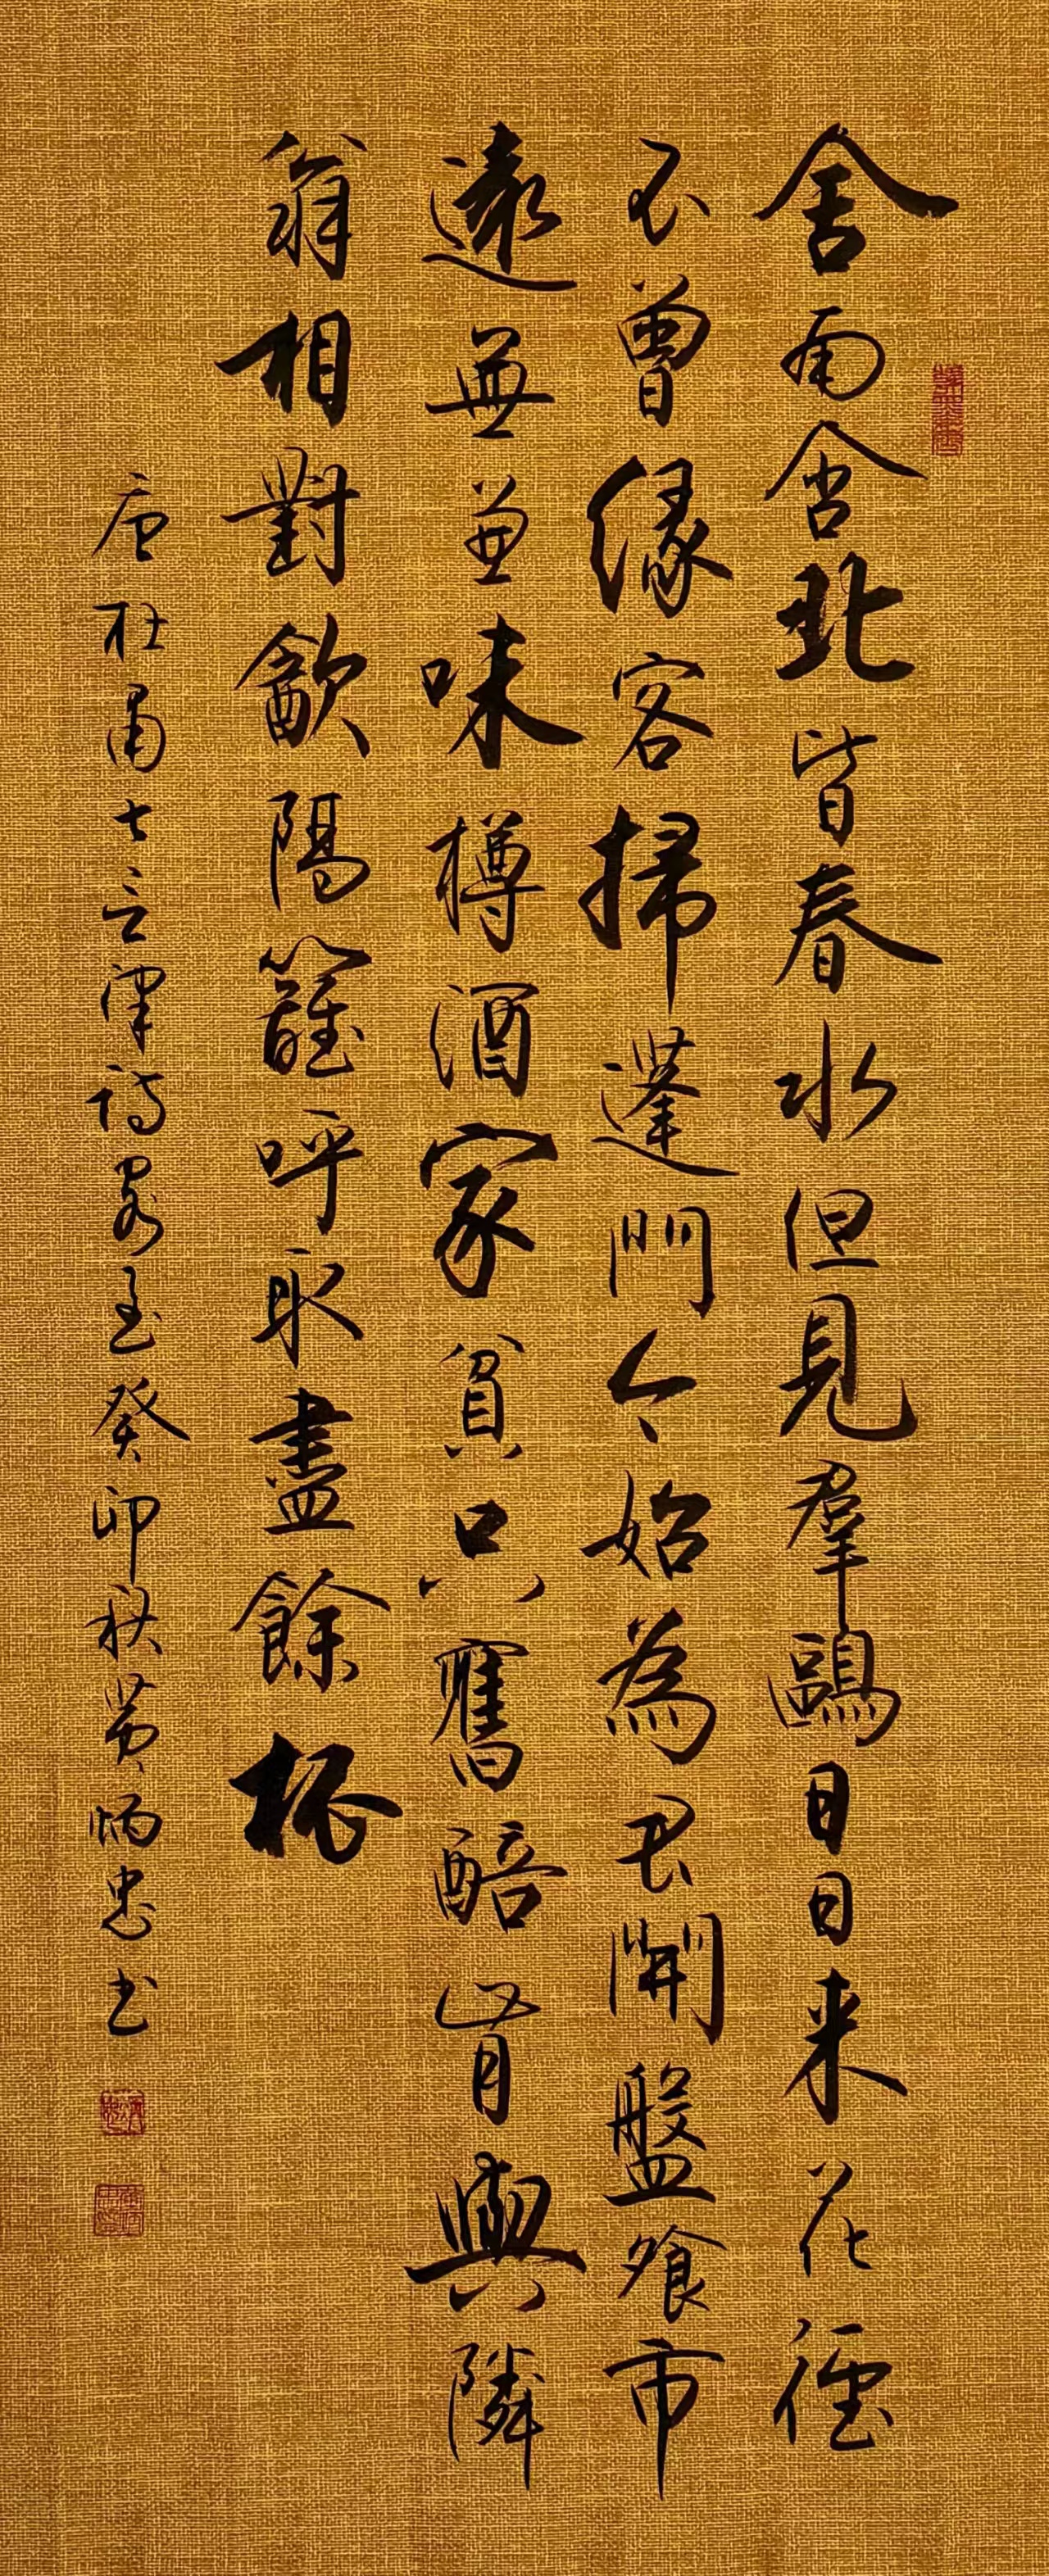 舍南舍北皆春水但見羣鷗日日来花徑
不曾緣客掃蓬門今始為君開盤飧市
遠無兼味樽酒家貧只舊醅肯與隣
翁相對飲隔籬呼取盡餘杯
唐杜甫七言律詩客至癸卯秋黄炳忠书